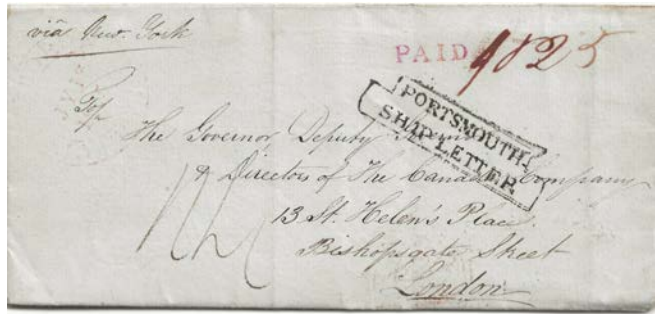 via New York
PAID
PORTSMOUTH
SHIP LETTER
To
The Governor, Deputy
& Directors of The Canada Company
13 St. Helen's Place
Bishopsgate Street
London